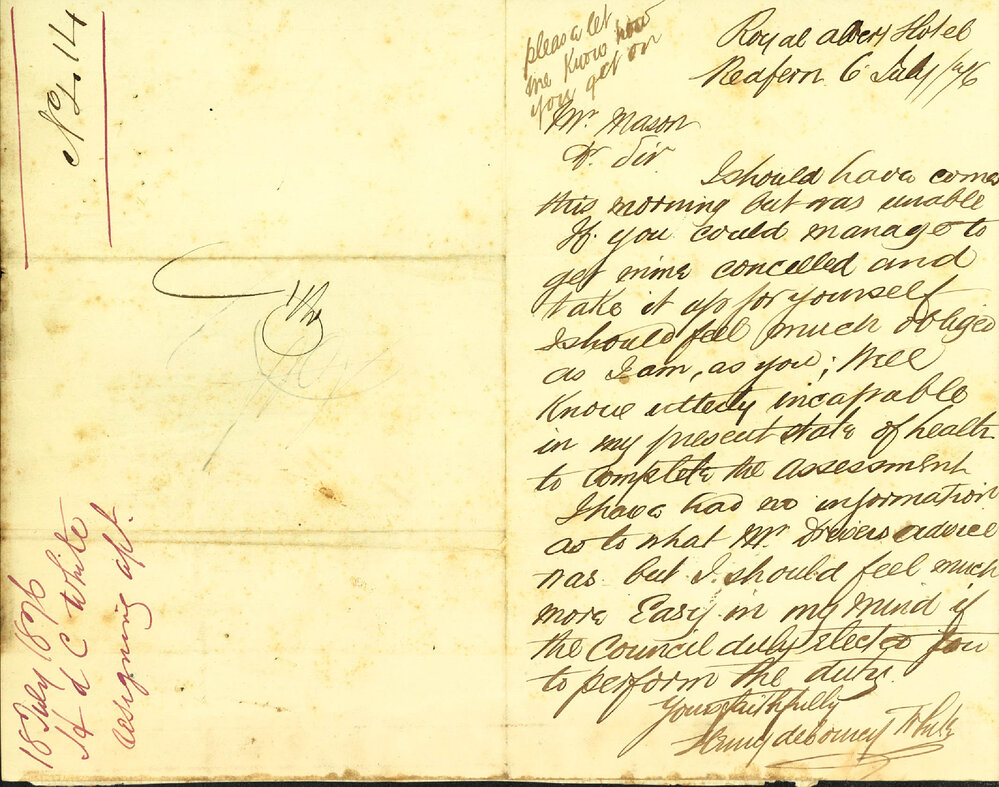 No 14
18 July 1876
H d C White
assigning apt.
please let
me Know how
you get on
Royal Albert Hotel
Redfern 6 July /76
Mr. Mason
Dr. Sir
I should have come
this morning but was unable
If you could manage to
get mine cancelled and
take it up for yourself
I should feel much obliged
as I am, as you; Well
Know utterly incapable
in my present state of health
to complete the assessment
I have had no information
as to what Mr. Drivers advice
was. but I should feel much
more Easy in my mind if
the Council duly elect you
to perform the duty.
Yours faithfully
Henry White